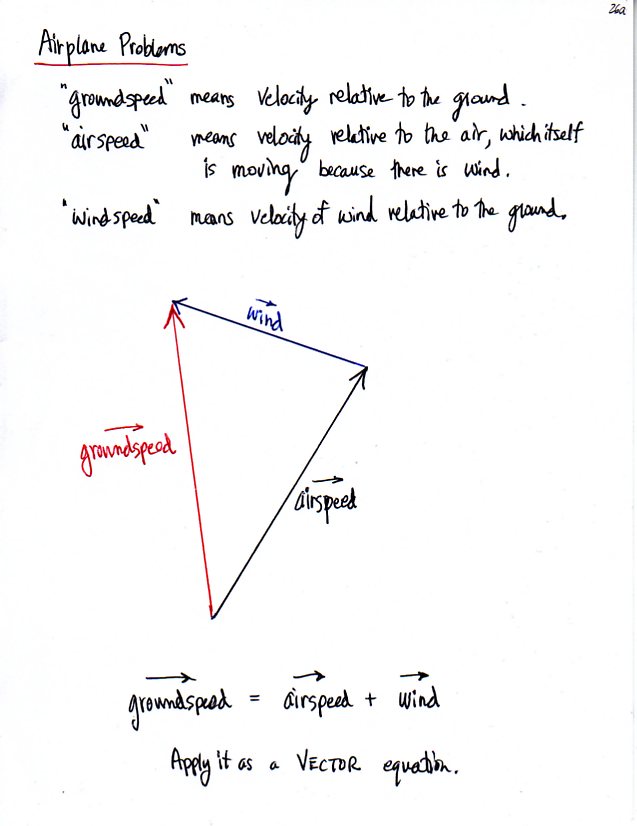 26a
Airplane Problems
"groundspeed" means velocity relative to the ground.
"airspeed" means velocity relative to the air, which itself
is moving because there is wind.
"windspeed" means velocity of wind relative to the ground.
wind
groundspeed
airspeed
groundspeed = airspeed + wind
Apply it as a VECTOR equation.